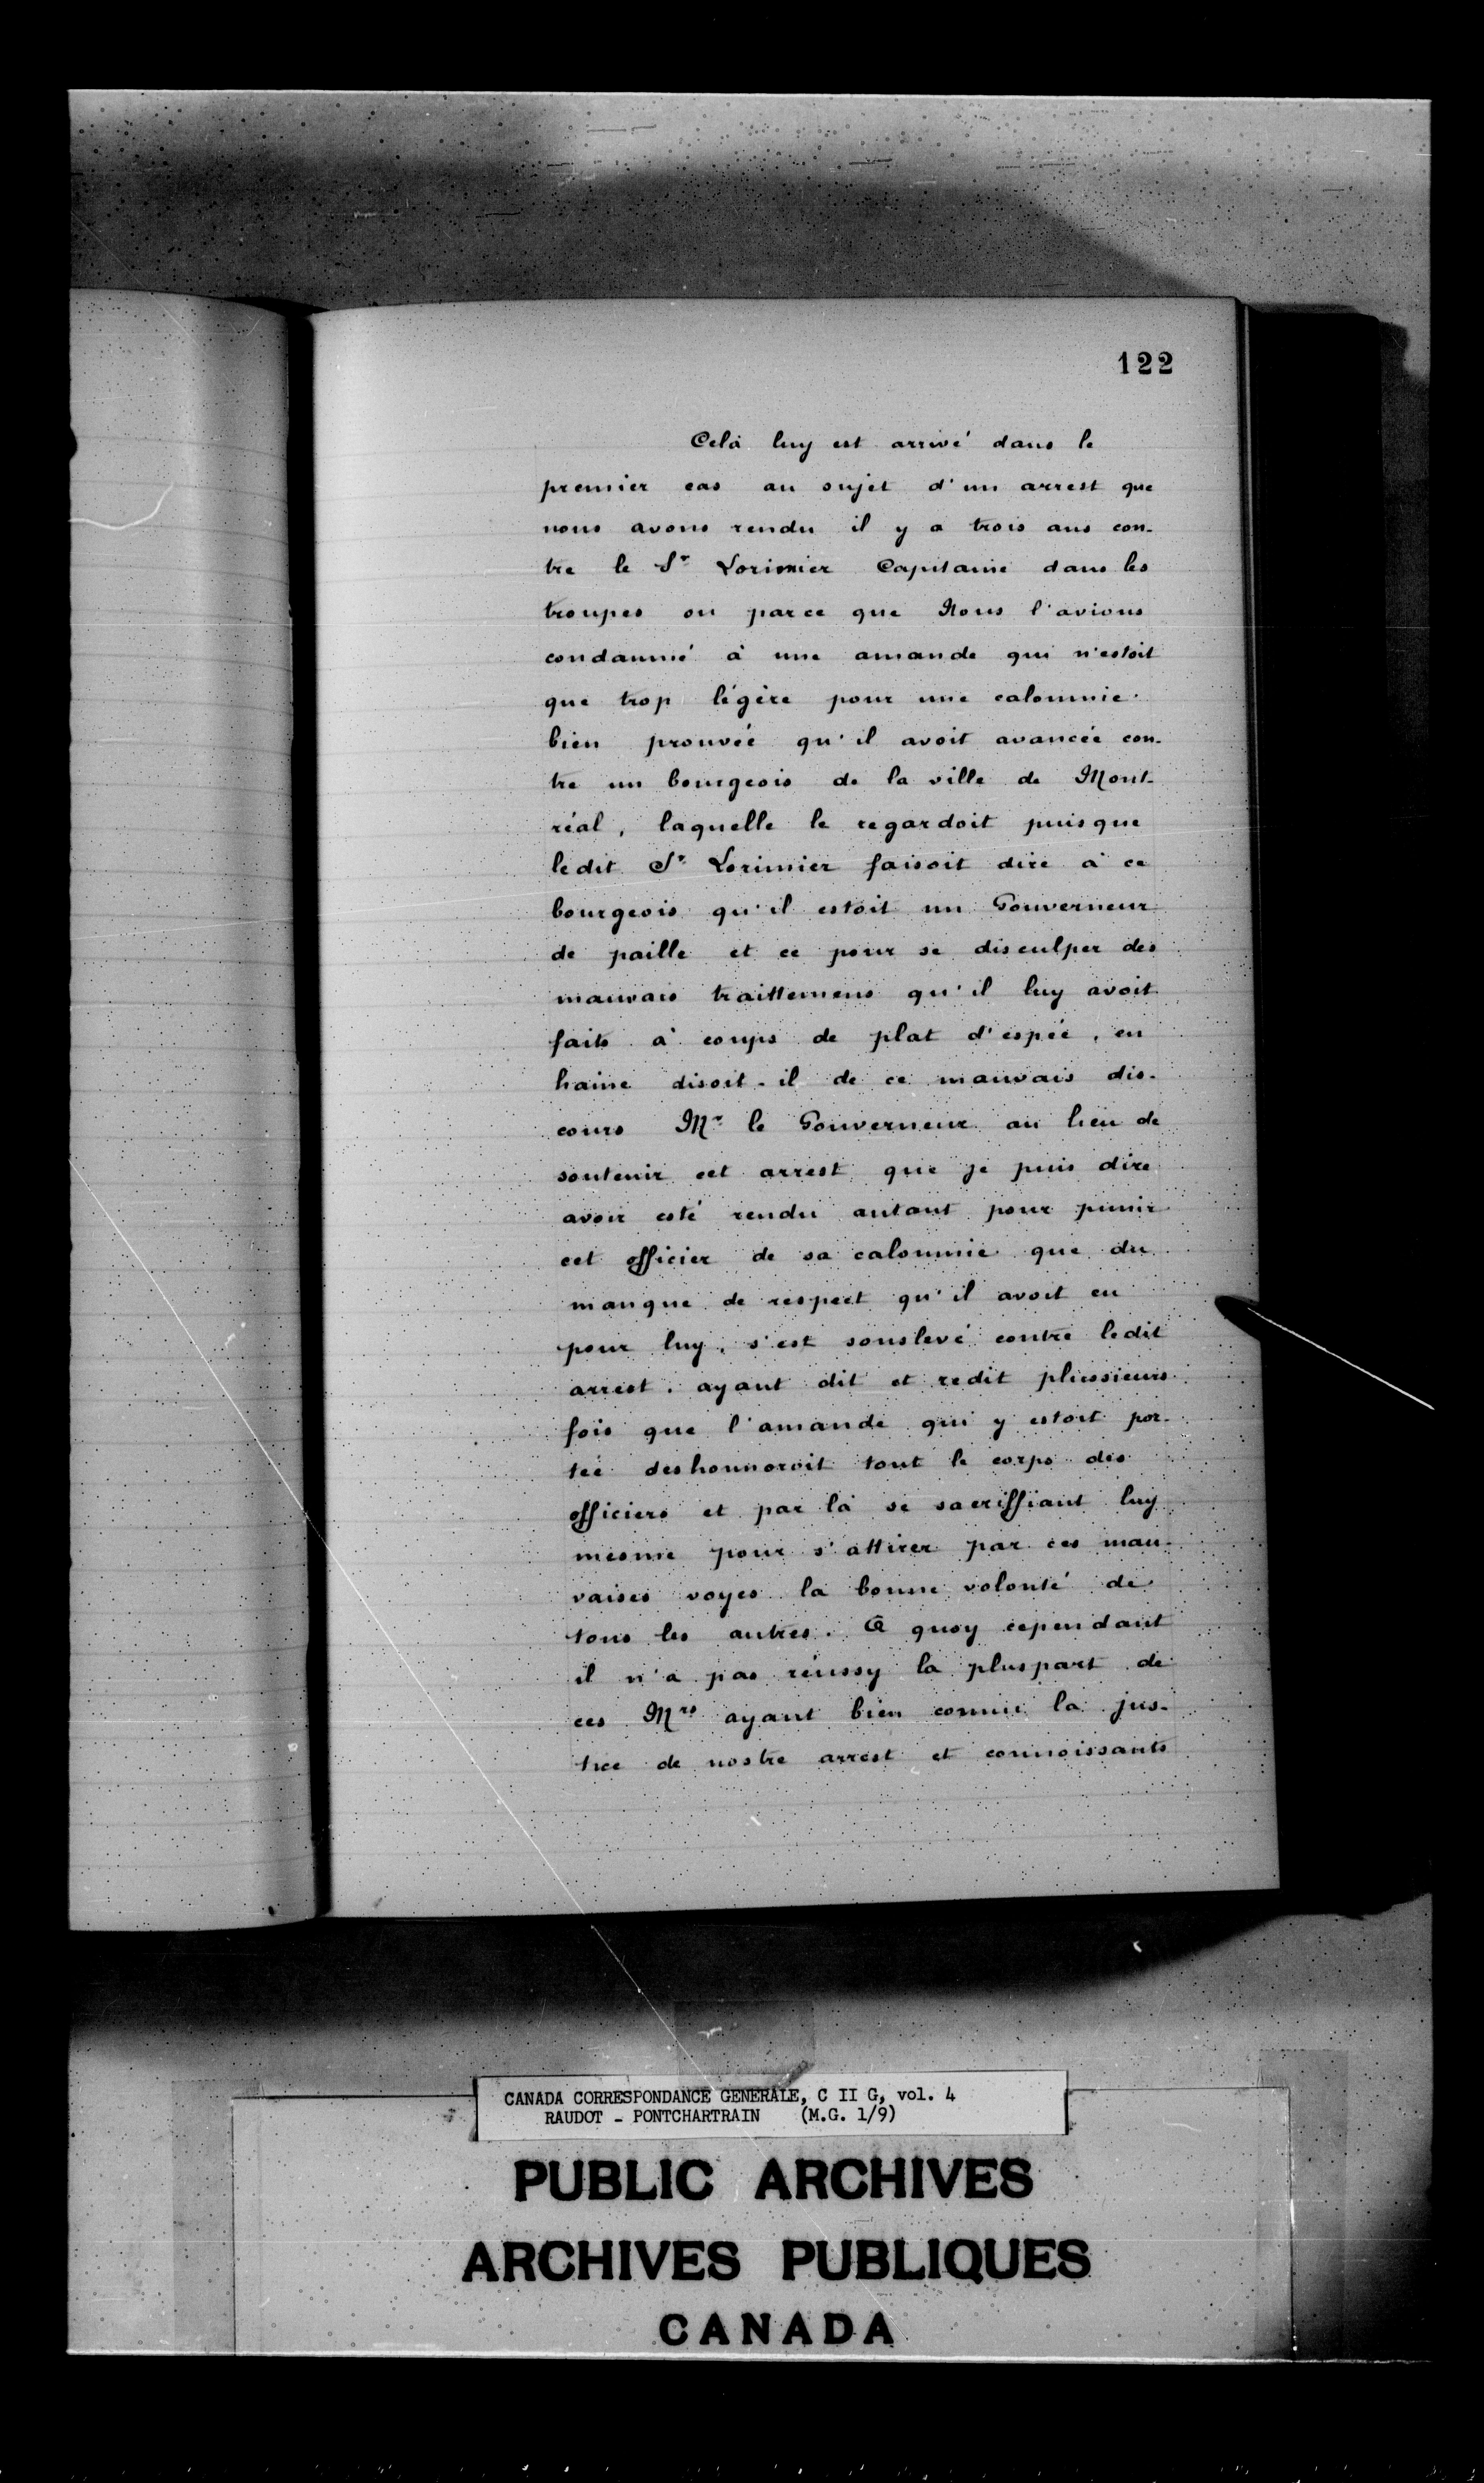 122
Celà luy est arrivé dans le
premier cas au sujet d'un arrest que
nous avons rendu il y a trois ans con-
tre le Sr Lorimier Capitaine dans les
troupes ou parce que Nous l'avions
condamné à une amande qui n'estoit
que trop légère pour une calomnie
bien prouvée qu'il avoit avancée con-
tre un bourgeois de la ville de Mont-
réal, laquelle le regardoit puisque
ledit Sr Lorimier faisoit dire à ce
bourgeois qu'il estoit un Gouverneur
de paille et ce pour se disculper des
mauvais traittemens qu'il luy avoit
faits à coups de plat d'espée, en
haine disoit-il de ce mauvais dis-
cours Mr le Gouverneur au lieu de
soutenir cet arrest que je puis dire
avoir esté rendu autant pour punir
cet officier de sa calomnie que du
manque de respect qu'il avoit eu
pour luy, s'est souslevé contre ledit
arrest, ayant dit et redit plussieurs
fois que l'amande qui y estoit por-
tée deshonnoroit tout le corps des
officiers et par là se sacriffiant luy
mesme pour s'attirer par ces mau-
vaises voyes la bonne volonté de
tous les autres. A quoy cependant
il n'a pas réussy la pluspart de
ces Mrs ayant bien connu la jus-
tice de nostre arrest et connoissants
CANADA CORRESPONDANCE GENERALE, C II G, vol. 4
RAUDOT - PONTCHARTRAIN (M.G. 1/9)
PUBLIC ARCHIVES
ARCHIVES PUBLIQUES
CANADA